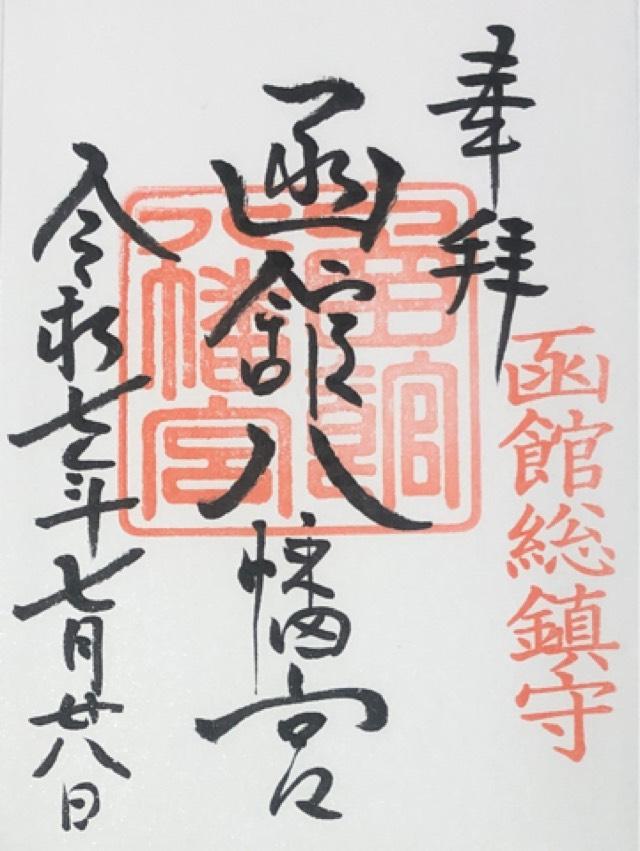 奉拝
函館総鎮守
函館八幡宮
函館八幡宮
令和七年七月廿八日